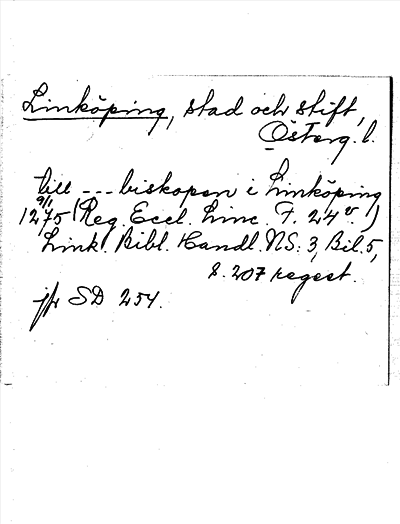 Linköping, stad och stift,
Österg. l.
till --- biskopen i Linköping
9/1
1275 (Reg. Eccl. Linc. F. 24 v.)
Link. Bibl. Handl. NS: 3, Bil. 5,
s. 207 regest.
jfr SD 254.